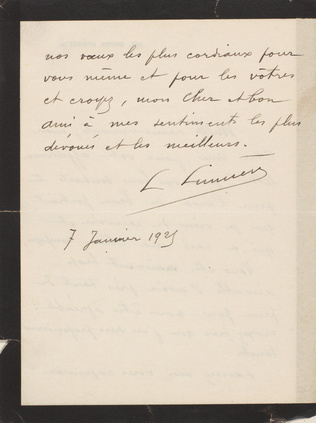 nos vœux les plus cordiaux pour
vous même et pour les vôtres
et croyez, mon cher et bon
ami à mes sentiments les plus
dévoués et les meilleurs.
L Lumière
7 Janvier 1925